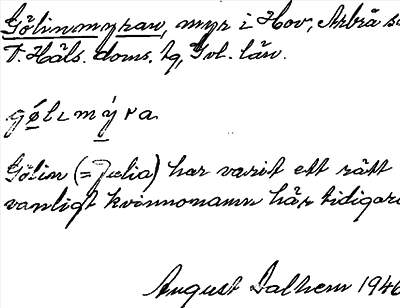 Gölinmyran, myr i Hov, Arbrå s
V. Häls. doms. tg, Gvl. län.
gø̣lɩmýra
Gölin (= Julia) har varit ett rätt
vanligt kvinnonamn här tidigare
August Dalhem 1946